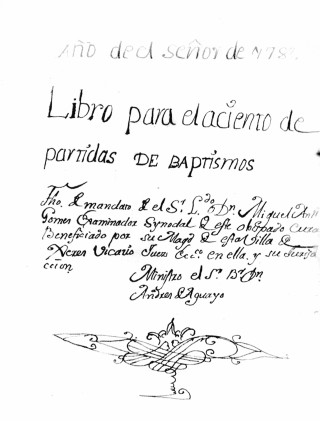 Año de el Señor de 178
Libro para el aciento de
partidas DE BAPTISMOS
Fho. de mandato de el Sr. Ldo. Dn. Miguel Ant
Gomes Examinador Synodal de este obispado Cura
Beneficiado por su Magd. de esta Villa de
Xerez Vicario Juez Ecco. en ella, y su
cion
Ministro el Sr. Br. Dn.
Andres de Aguayo